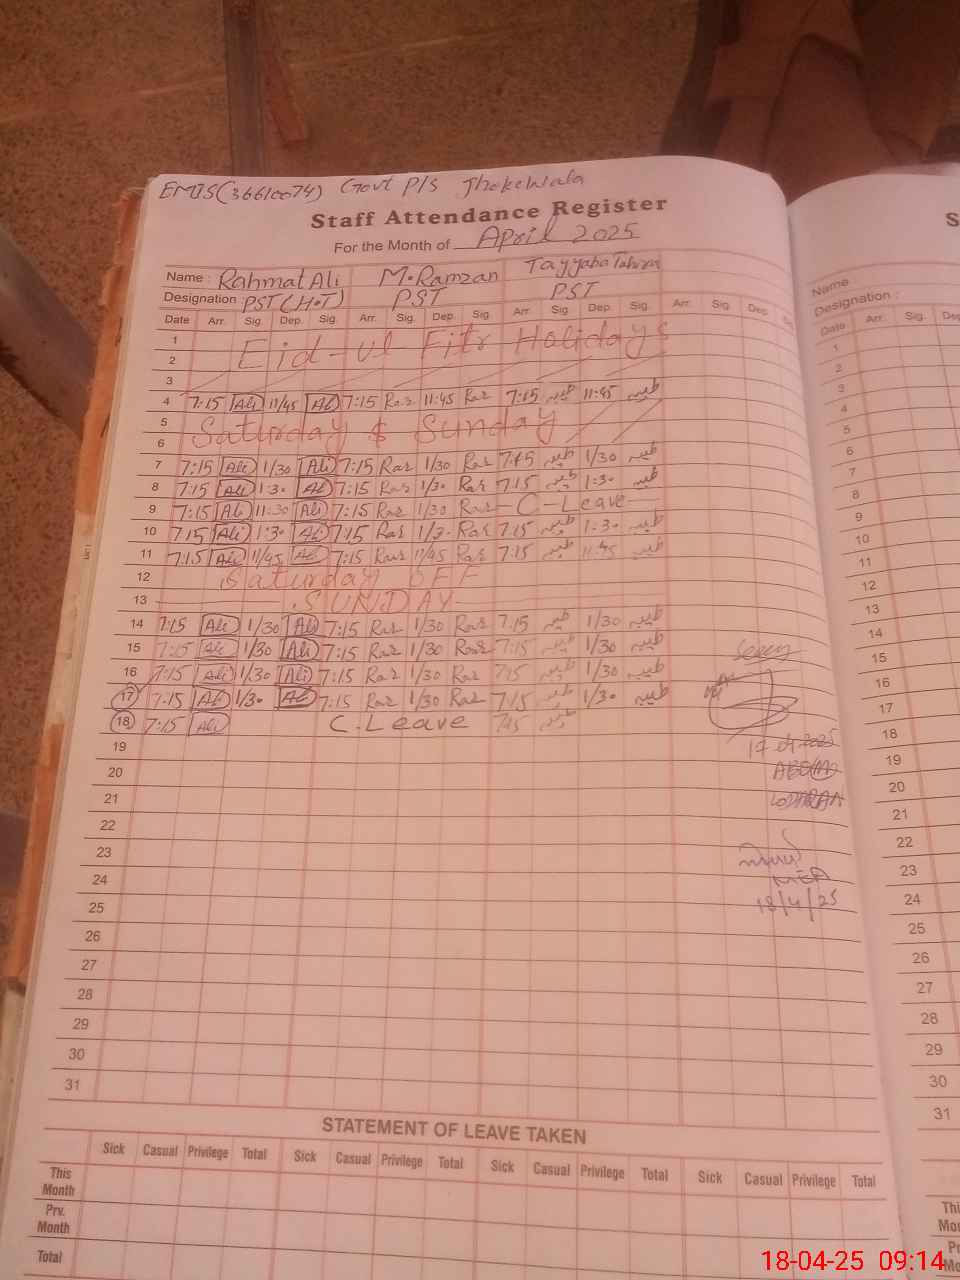 EMIS(36610074) Govt P/S Jhokewala
Staff Attendance Register
For the Month of April 2025
Name : Rahmat Ali M.Ramzan Tayyaba Tahira
Designation PST(H.T) PST PST
Date Arr. Sig. Dep. Sig. Arr. Sig. Dep. Sig. Arr. Sig. Dep. Sig. Arr. Sig. Dep. Sig.
1
2 Eid-ul Fitr Holidays
3
4 7:15 Ali 11/45 Ali 7:15 Raz 11:45 Raz 7:15 طیبہ 11:45 طیبہ
5 Saturday & Sunday
6
7 7:15 Ali 1/30 Ali 7:15 Raz 1/30 Raz 7:15 طیبہ 1/30 طیبہ
8 7:15 Ali 1:30 Ali 7:15 Raz 1/30 Raz 7:15 طیبہ 1:30 طیبہ
9 7:15 Ali 11:30 Ali 7:15 Raz 1/30 Raz C-Leave
10 7:15 Ali 1:30 Ali 7:15 Raz 1/30 Raz 7:15 طیبہ 1:30 طیبہ
11 7:15 Ali 11/45 Ali 7:15 Raz 11/45 Raz 7:15 طیبہ 11:45 طیبہ
12 Saturday OFF
13 SUNDAY
14 7:15 Ali 1/30 Ali 7:15 Raz 1/30 Raz 7:15 طیبہ 1/30 طیبہ
15 7:15 Ali 1/30 Ali 7:15 Raz 1/30 Raz 7:15 طیبہ 1/30 طیبہ
16 7:15 Ali 1/30 Ali 7:15 Raz 1/30 Raz 7:15 طیبہ 1/30 طیبہ
17 7:15 Ali 1/30 Ali 7:15 Raz 1/30 Raz 7:15 طیبہ 1/30 طیبہ
18 7:15 Ali C.Leave 7:15 طیبہ
Seen
17-04-2025
AEO(M)
LODHRAN
MEA
18/4/25
19
20
21
22
23
24
25
26
27
28
29
30
31
STATEMENT OF LEAVE TAKEN
Sick Casual Privilege Total Sick Casual Privilege Total Sick Casual Privilege Total Sick Casual Privilege Total
This
Month
Prv.
Month
Total
S
Name :
Designation :
Date Arr. Sig. Dep
1
2
3
4
5
6
7
8
9
10
11
12
13
14
15
16
17
18
19
20
21
22
23
24
25
26
27
28
29
30
31
18-04-25 09:14